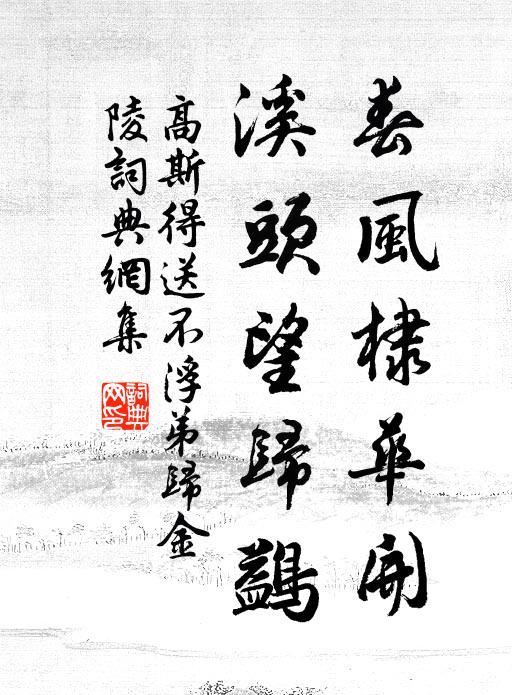 春風棣華開
溪頭望歸鷁
高斯得送不浮弟歸金
陵詞典網集
詞典
网印